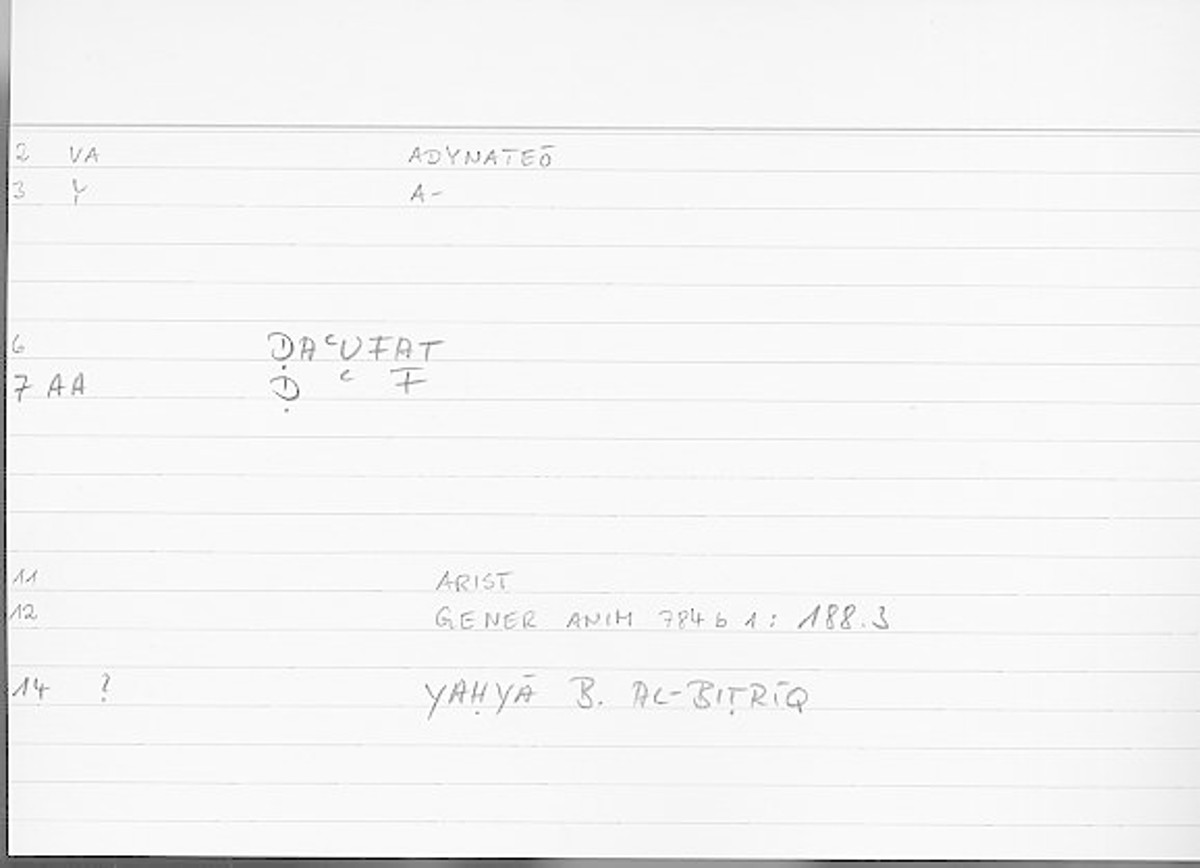 2 VA ADYNATEŌ
3 Y A-
6 ḌAʿUFAT
7 AA Ḍ ʿ F
11 ARIST
12 GENER ANIM 784 b 1 : 188.3
14 ? YAḤYĀ B. AL-BIṬRĪQ